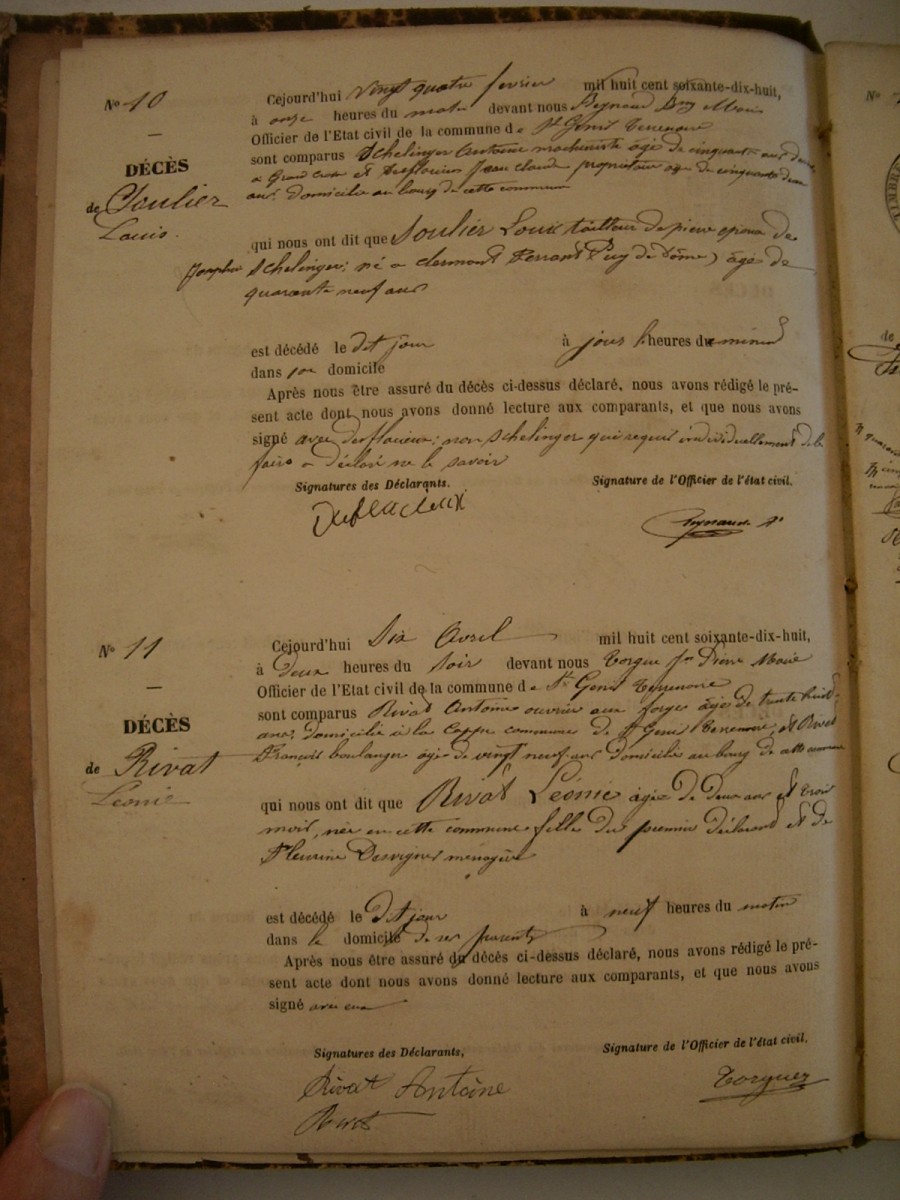 N° 10
DÉCÈS
de Soulier
Louis.
Cejourd'hui vingt quatre fevrier mil huit cent soixante-dix-huit,
à onze heures du matin devant nous Peynaud Maire
Officier de l'Etat civil de la commune de St Genis Terrenoire
sont comparus Schelinger Antoine machiniste âgé de cinquante ans
a Grand Croix et Jean Claude propriétaire age de cinquante deux
ans domicilié au bourg de cette commune
qui nous ont dit que Soulier Louis tailleur de pierre epoux de
Josephine Schelinger; né a clermont Ferrant (Puy de Dôme) âgé de
quarante neuf ans
est décédé le dit jour à heures du
dans son domicile
Après nous être assuré du décès ci-dessus déclaré, nous avons rédigé le pré-
sent acte dont nous avons donné lecture aux comparants, et que nous avons
signé avec non Schelinger qui requis individuellement de le
faire a déclaré ne le savoir
Signatures des Déclarants. Signature de l'Officier de l'état civil.
N° 11
DÉCÈS
de Rivat
Léonie
Cejourd'hui Six Avril mil huit cent soixante-dix-huit,
à deux heures du soir devant nous Torgue Jn Pierre Maire
Officier de l'Etat civil de la commune de St Genis Terrenoire
sont comparus Rivat Antoine ouvrier aux forges âgé de trente huit
ans, domicilié à la Cappe commune de St Genis Terrenoire, et Rivat
François boulanger âgé de vingt neuf ans domicilié au bourg de cette commune
qui nous ont dit que Rivat Léonie âgée de deux ans et trois
mois, née en cette commune fille du premier déclarant et de
Fleurine Desvignes ménagère
est décédé le dit jour à neuf heures du matin
dans le domicile de ses parents
Après nous être assuré du décès ci-dessus déclaré, nous avons rédigé le pré-
sent acte dont nous avons donné lecture aux comparants, et que nous avons
signé avec eux
Signatures des Déclarants, Signature de l'Officier de l'état civil.
Rivat Antoine
Rivat
N°
de